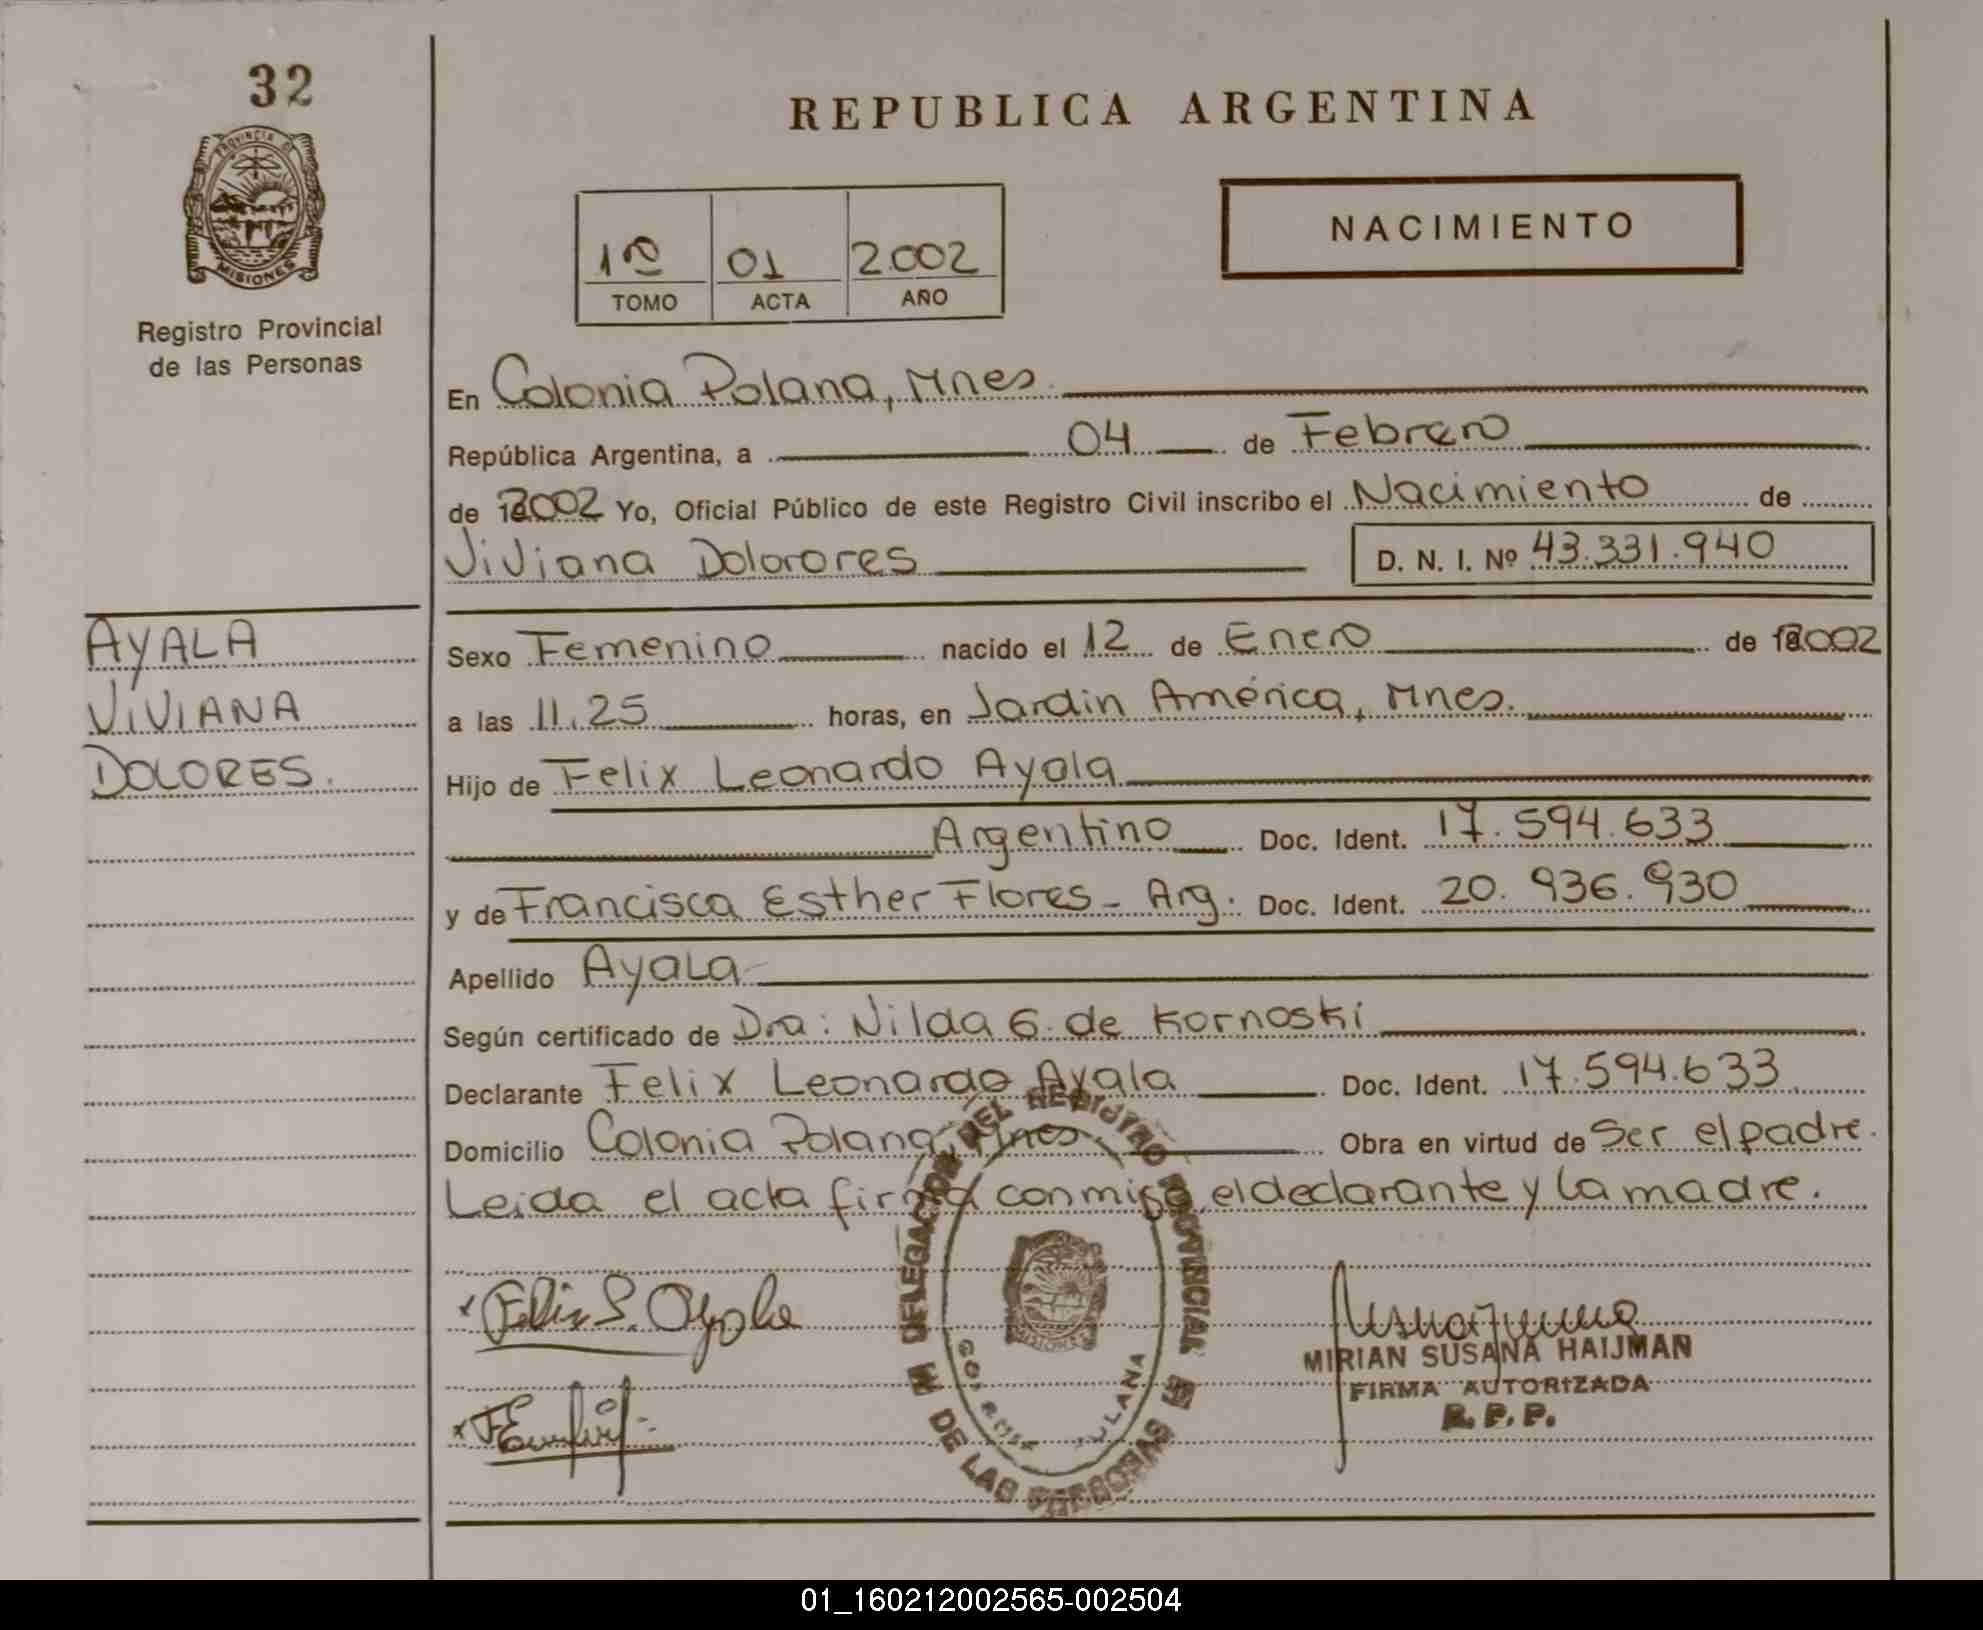 32
PROVINCIA D
MISIONES
Registro Provincial
de las Personas
REPUBLICA ARGENTINA
NACIMIENTO
1º 01 2.002
TOMO ACTA AÑO
En Colonia Polana, Mnes.
República Argentina, a 04 de Febrero
de 2002 Yo, Oficial Público de este Registro Civil inscribo el Nacimiento de
Viviana Dolorores D. N. I. Nº 43.331.940
AYALA
VIVIANA
DOLORES.
Sexo Femenino nacido el 12 de Enero de 2002
a las 11.25 horas, en Jardin América, Mnes.
Hijo de Felix Leonardo Ayala
Argentino Doc. Ident. 17.594.633
y de Francisca Esther Flores - Arg. Doc. Ident. 20.936.930
Apellido Ayala
Según certificado de Dra: Nilda G. de Kornoski
Declarante Felix Leonardo Ayala Doc. Ident. 17.594.633
Domicilio Colonia Polana, Mnes Obra en virtud de Ser el padre.
Leida el acta firma conmigo el declarante y la madre.
Felix L. Ayala
DELEGACION DEL REGISTRO PROVINCIAL
DE LAS PERSONAS
MISIONES
MIRIAN SUSANA HAIJMAN
FIRMA AUTORIZADA
R. P. P.
01_160212002565-002504